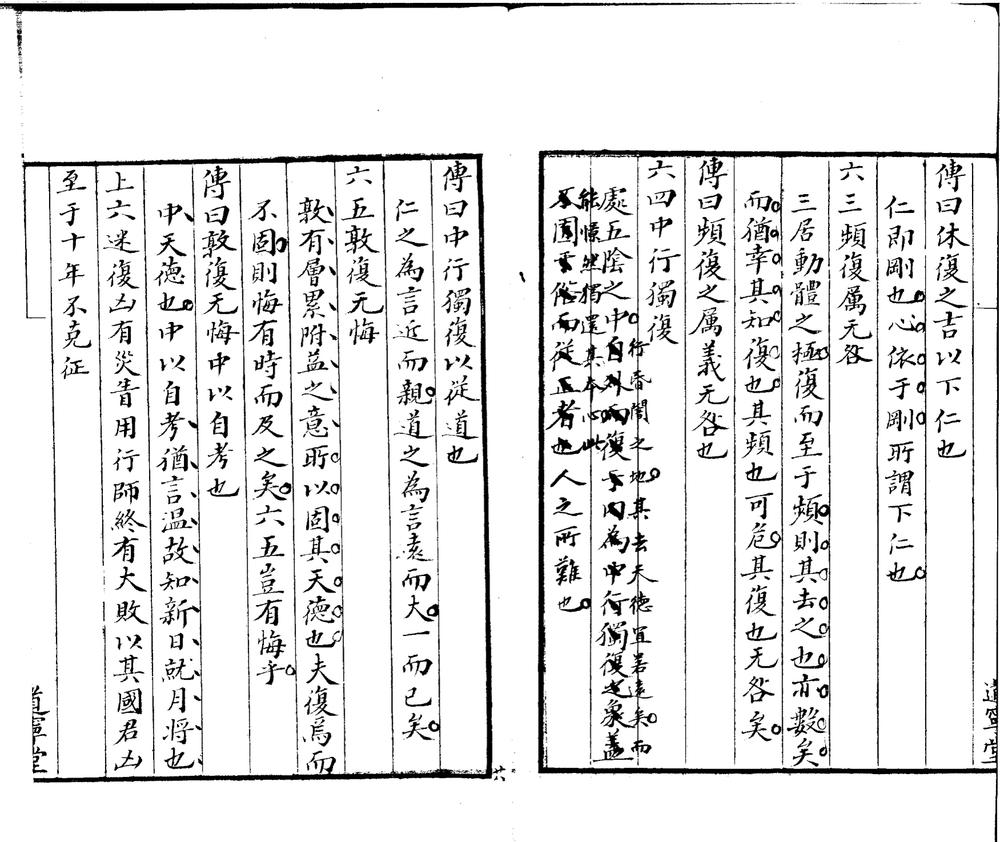 傳曰休復之吉以下仁也
仁即剛也心依于剛所謂下仁也
六三頻復厲无咎
三居動體之極復而至于頻則其去之也亦數矣
而猶幸其知復也其頻也可危其復也无咎矣
傳曰頻復之厲義无咎也
六四中行獨復
行昏闇之地其去天德宜若遠矣而
處五陰之中自外而復于內為中行獨復之象蓋
能憬然獨還其本心此
而從正者也人之所難也
道寧堂
傳曰中行獨復以從道也
仁之為言近而親道之為言遠而大一而已矣
六五敦復无悔
敦有層累附益之意所以固其天德也夫復焉而
不固則悔有時而及之矣六五豈有悔乎
傳曰敦復无悔中以自考也
中天德也中以自考猶言温故知新日就月將也
上六迷復凶有災眚用行師終有大敗以其國君凶
至于十年不克征
道寧堂